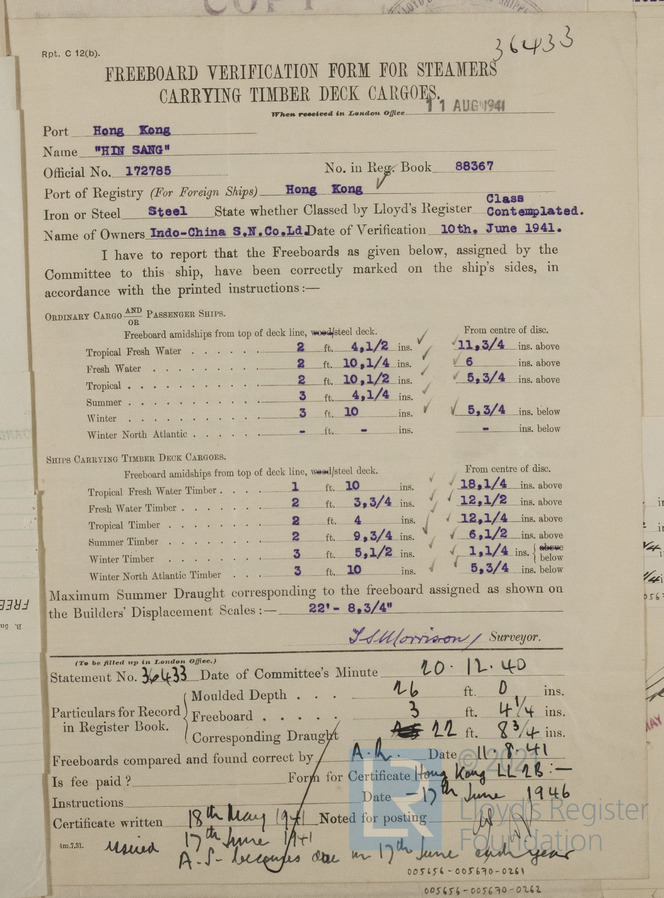 COPY
36433
Rpt. C 12(b).
FREEBOARD VERIFICATION FORM FOR STEAMERS
CARRYING TIMBER DECK CARGOES.
11 AUG 1941
When received in London Office
Port Hong Kong
Name "HIN SANG"
Official No. 172785 No. in Reg. Book 88367
Port of Registry (For Foreign Ships) Hong Kong
Iron or Steel Steel State whether Classed by Lloyd's Register Class Contemplated.
Name of Owners Indo-China S.N.Co.Ld. Date of Verification 10th. June 1941.
I have to report that the Freeboards as given below, assigned by the
Committee to this ship, have been correctly marked on the ship's sides, in
accordance with the printed instructions:—
ORDINARY CARGO AND OR PASSENGER SHIPS.
Freeboard amidships from top of deck line, wood/steel deck. From centre of disc.
Tropical Fresh Water 2 ft. 4,1/2 ins. 11,3/4 ins. above
Fresh Water 2 ft. 10,1/4 ins. 6 ins. above
Tropical 2 ft. 10,1/2 ins. 5,3/4 ins. above
Summer 3 ft. 4,1/4 ins.
Winter 3 ft. 10 ins. 5,3/4 ins. below
Winter North Atlantic - ft. - ins. - ins. below
SHIPS CARRYING TIMBER DECK CARGOES.
Freeboard amidships from top of deck line, wood/steel deck. From centre of disc.
Tropical Fresh Water Timber 1 ft. 10 ins. 18,1/4 ins. above
Fresh Water Timber 2 ft. 3,3/4 ins. 12,1/2 ins. above
Tropical Timber 2 ft. 4 ins. 12,1/4 ins. above
Summer Timber 2 ft. 9,3/4 ins. 6,1/2 ins. above
Winter Timber 3 ft. 5,1/2 ins. 1,1/4 ins. above below
Winter North Atlantic Timber 3 ft. 10 ins. 5,3/4 ins. below
Maximum Summer Draught corresponding to the freeboard assigned as shown on
the Builders' Displacement Scales:— 22'- 8,3/4"
Morrison Surveyor.
(To be filled up in London Office.)
Statement No. 36433 Date of Committee's Minute 20.12.40
Particulars for Record in Register Book.
Moulded Depth 26 ft. 0 ins.
Freeboard 3 ft. 4 1/4 ins.
Corresponding Draught 22 ft. 8 3/4 ins.
Freeboards compared and found correct by A.R. Date 11.8.41
Is fee paid? Form for Certificate Hong Kong LL 2B:—
Instructions Date -17th June 1946
Certificate written 18th May 1941 Noted for posting
4m.7.31. issued 17th June 1941
A.S. becomes due on 17th June each year
© 202
LR
Lloyd's Register
Foundation
005656-005670-0261
005656-005670-0262